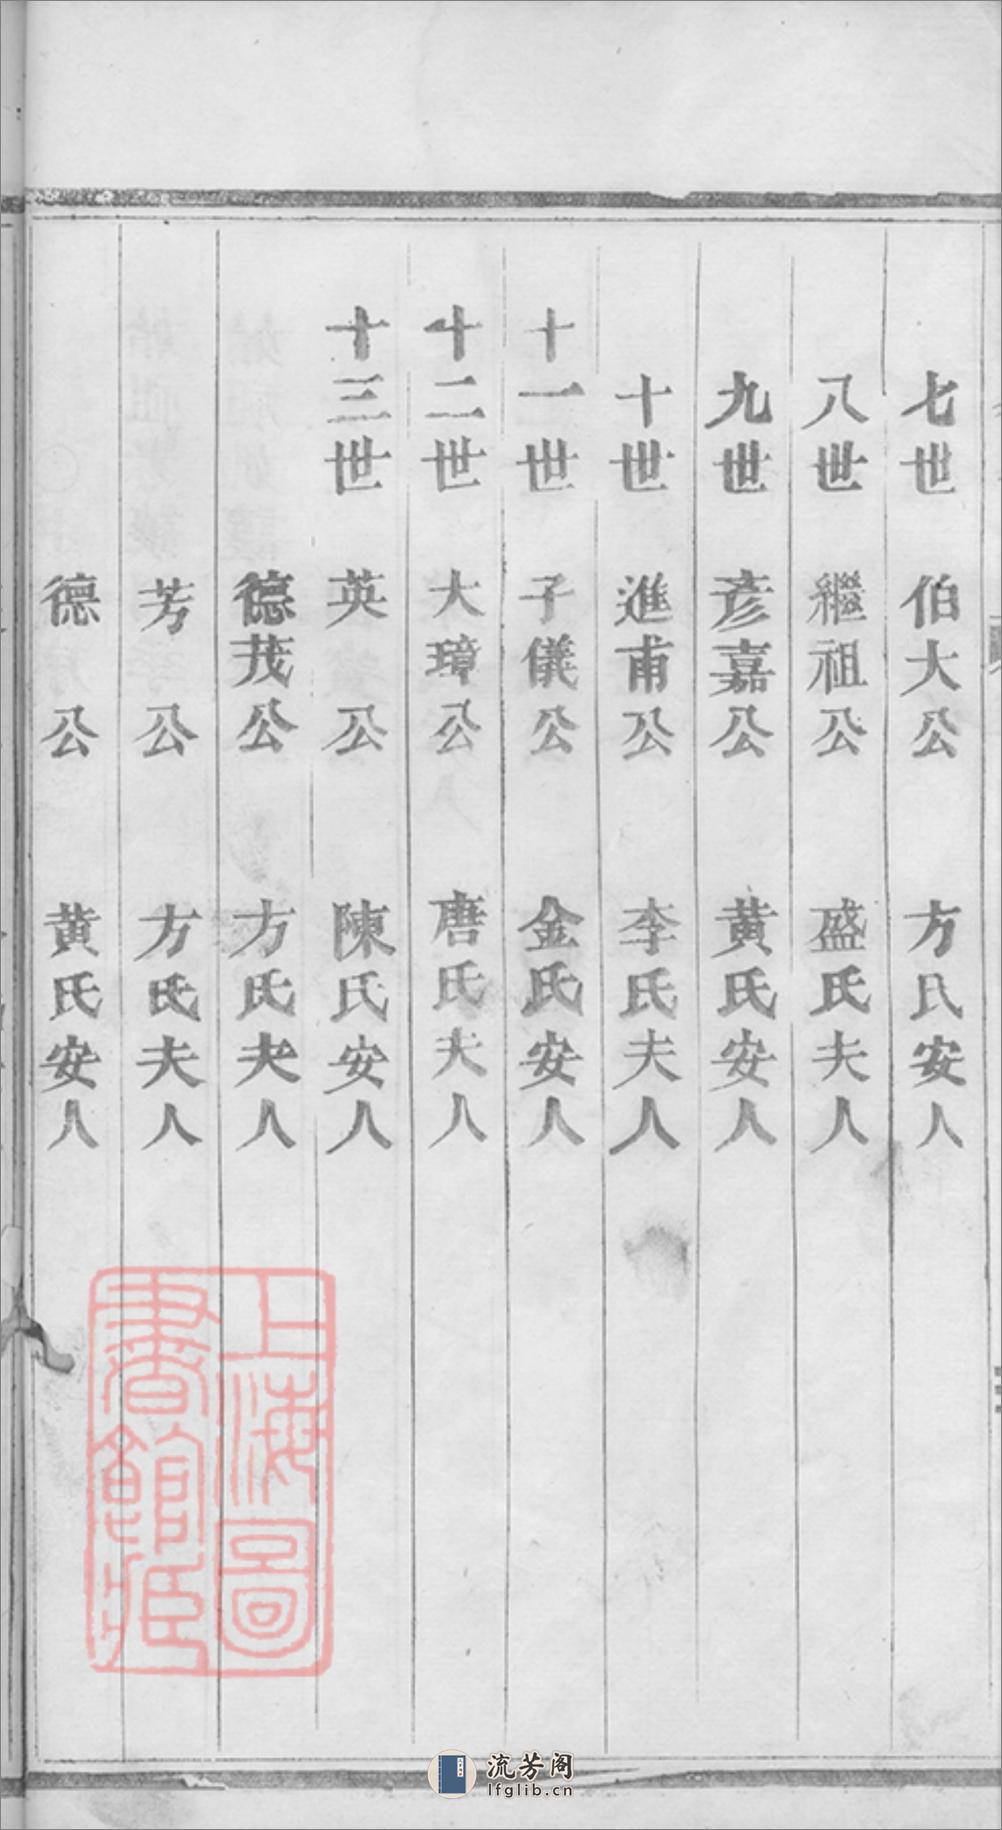 七世 伯大公 方氏安人
八世 繼祖公 盛氏夫人
九世 彦嘉公 黄氏安人
十世 進甫公 李氏夫人
十一世 子儀公 金氏安人
十二世 大璋公 唐氏夫人
十三世 英公 陳氏安人
德茂公 方氏夫人
芳公 方氏夫人
德公 黄氏安人
上海圖書館藏
流芳阁
lfglib.cn